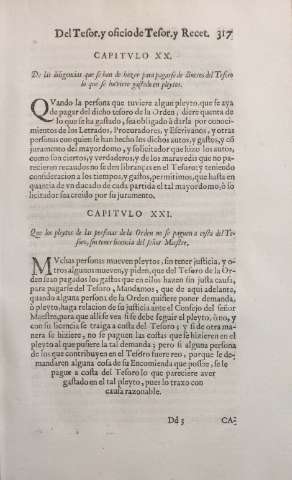 Del Tesor. y oficio de Tesor. y Recet. 317
CAPITVLO XX.
De las diligencias que se han de hazer para pagarse de dineros del Tesoro
lo que se huviere gastado en pleytos.
QVando la persona que tuviere algun pleyto, que se aya
de pagar del dicho tesoro de la Orden, diere quenta de
lo que se ha gastado, sea obligado à darla por conoci-
mientos de los Letrados, Procuradores, y Escrivanos, y otras
personas con quien se han hecho los dichos autos, y gastos, y cõ
juramento del mayordomo, y solicitador que hizo los autos,
como son ciertos, y verdaderos, y de los maravedis que no pa-
recieren recaudos no se den libranças en el Tesoro; y teniendo
consideracion a los tiempos, y gastos, permitimos, que hasta en
quancia de vn ducado de cada partida el tal mayordomo, ò so
licitador sea creido por su juramento.
CAPITVLO XXI.
Que los pleytos de las personas de la Orden no se paguen a costa del Te-
soro, sin tener licencia del señor Maestre.
MVchas personas mueven pleytos, sin tener justicia, y o-
tros algunos mueven, y piden, que del Tesoro de la Or-
den sean pagados los gastos que en ellos hazen sin justa causa,
para pagarse del Tesoro, Mandamos, que de aqui adelante,
quando alguna persona de la Orden quisiere poner demanda,
ò pleyto, haga relacion de su justicia ante el Consejo del señor
Maestre, para que alli se vea si se debe seguir el pleyto, ò no, y
con su licencia se traiga a costa del Tesoro; y si de otra ma-
nera se hiziere, no se paguen las costas que se hizieren en el
pleyto al que pusiere la tal demanda; pero si alguna persona
de los que contribuyen en el Tesoro fuere reo, porque le de-
mandaron alguna cosa de su Encomienda que possee, se le
pague a costa del Tesoro lo que pareciere aver
gastado en el tal pleyto, pues lo traxo con
causa razonable.
Dd 3 CA-